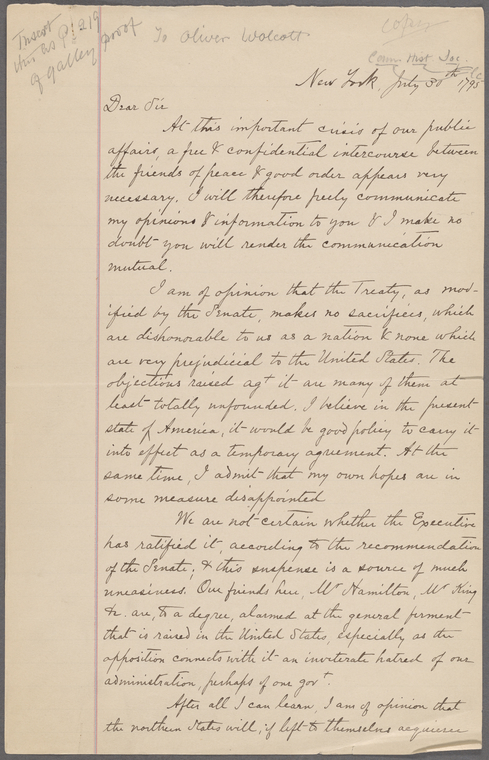 Insert
this as p. 219
of galley proof
To Oliver Wolcott
copy
Conn. Hist. Soc.
New York, July 30th 1795
Dear Sir
At this important crisis of our public
affairs, a free & confidential intercourse between
the friends of peace & good order appears very
necessary. I will therefore freely communicate
my opinions & information to you & I make no
doubt you will render the communication
mutual.
I am of opinion that the Treaty, as mod-
ified by the Senate, makes no sacrifices, which
are dishonorable to us as a nation & none which
are very prejudicial to the United States. The
objections raised agt it are many of them at
least totally unfounded. I believe in the present
state of America, it would be good policy to carry it
into effect as a temporary agreement. At the
same time, I admit that my own hopes are in
some measure disappointed
We are not certain whether the Executive
has ratified it, according to the recommendation
of the Senate; & this suspense is a source of much
uneasiness. Our friends here, Mr Hamilton, Mr King
&c. are, to a degree, alarmed at the general ferment
that is raised in the United States, especially as the
opposition connects with it an inveterate hatred of our
administration, perhaps of our govt.
After all I can learn, I am of opinion that
the northern States will, if left to themselves acquiesce